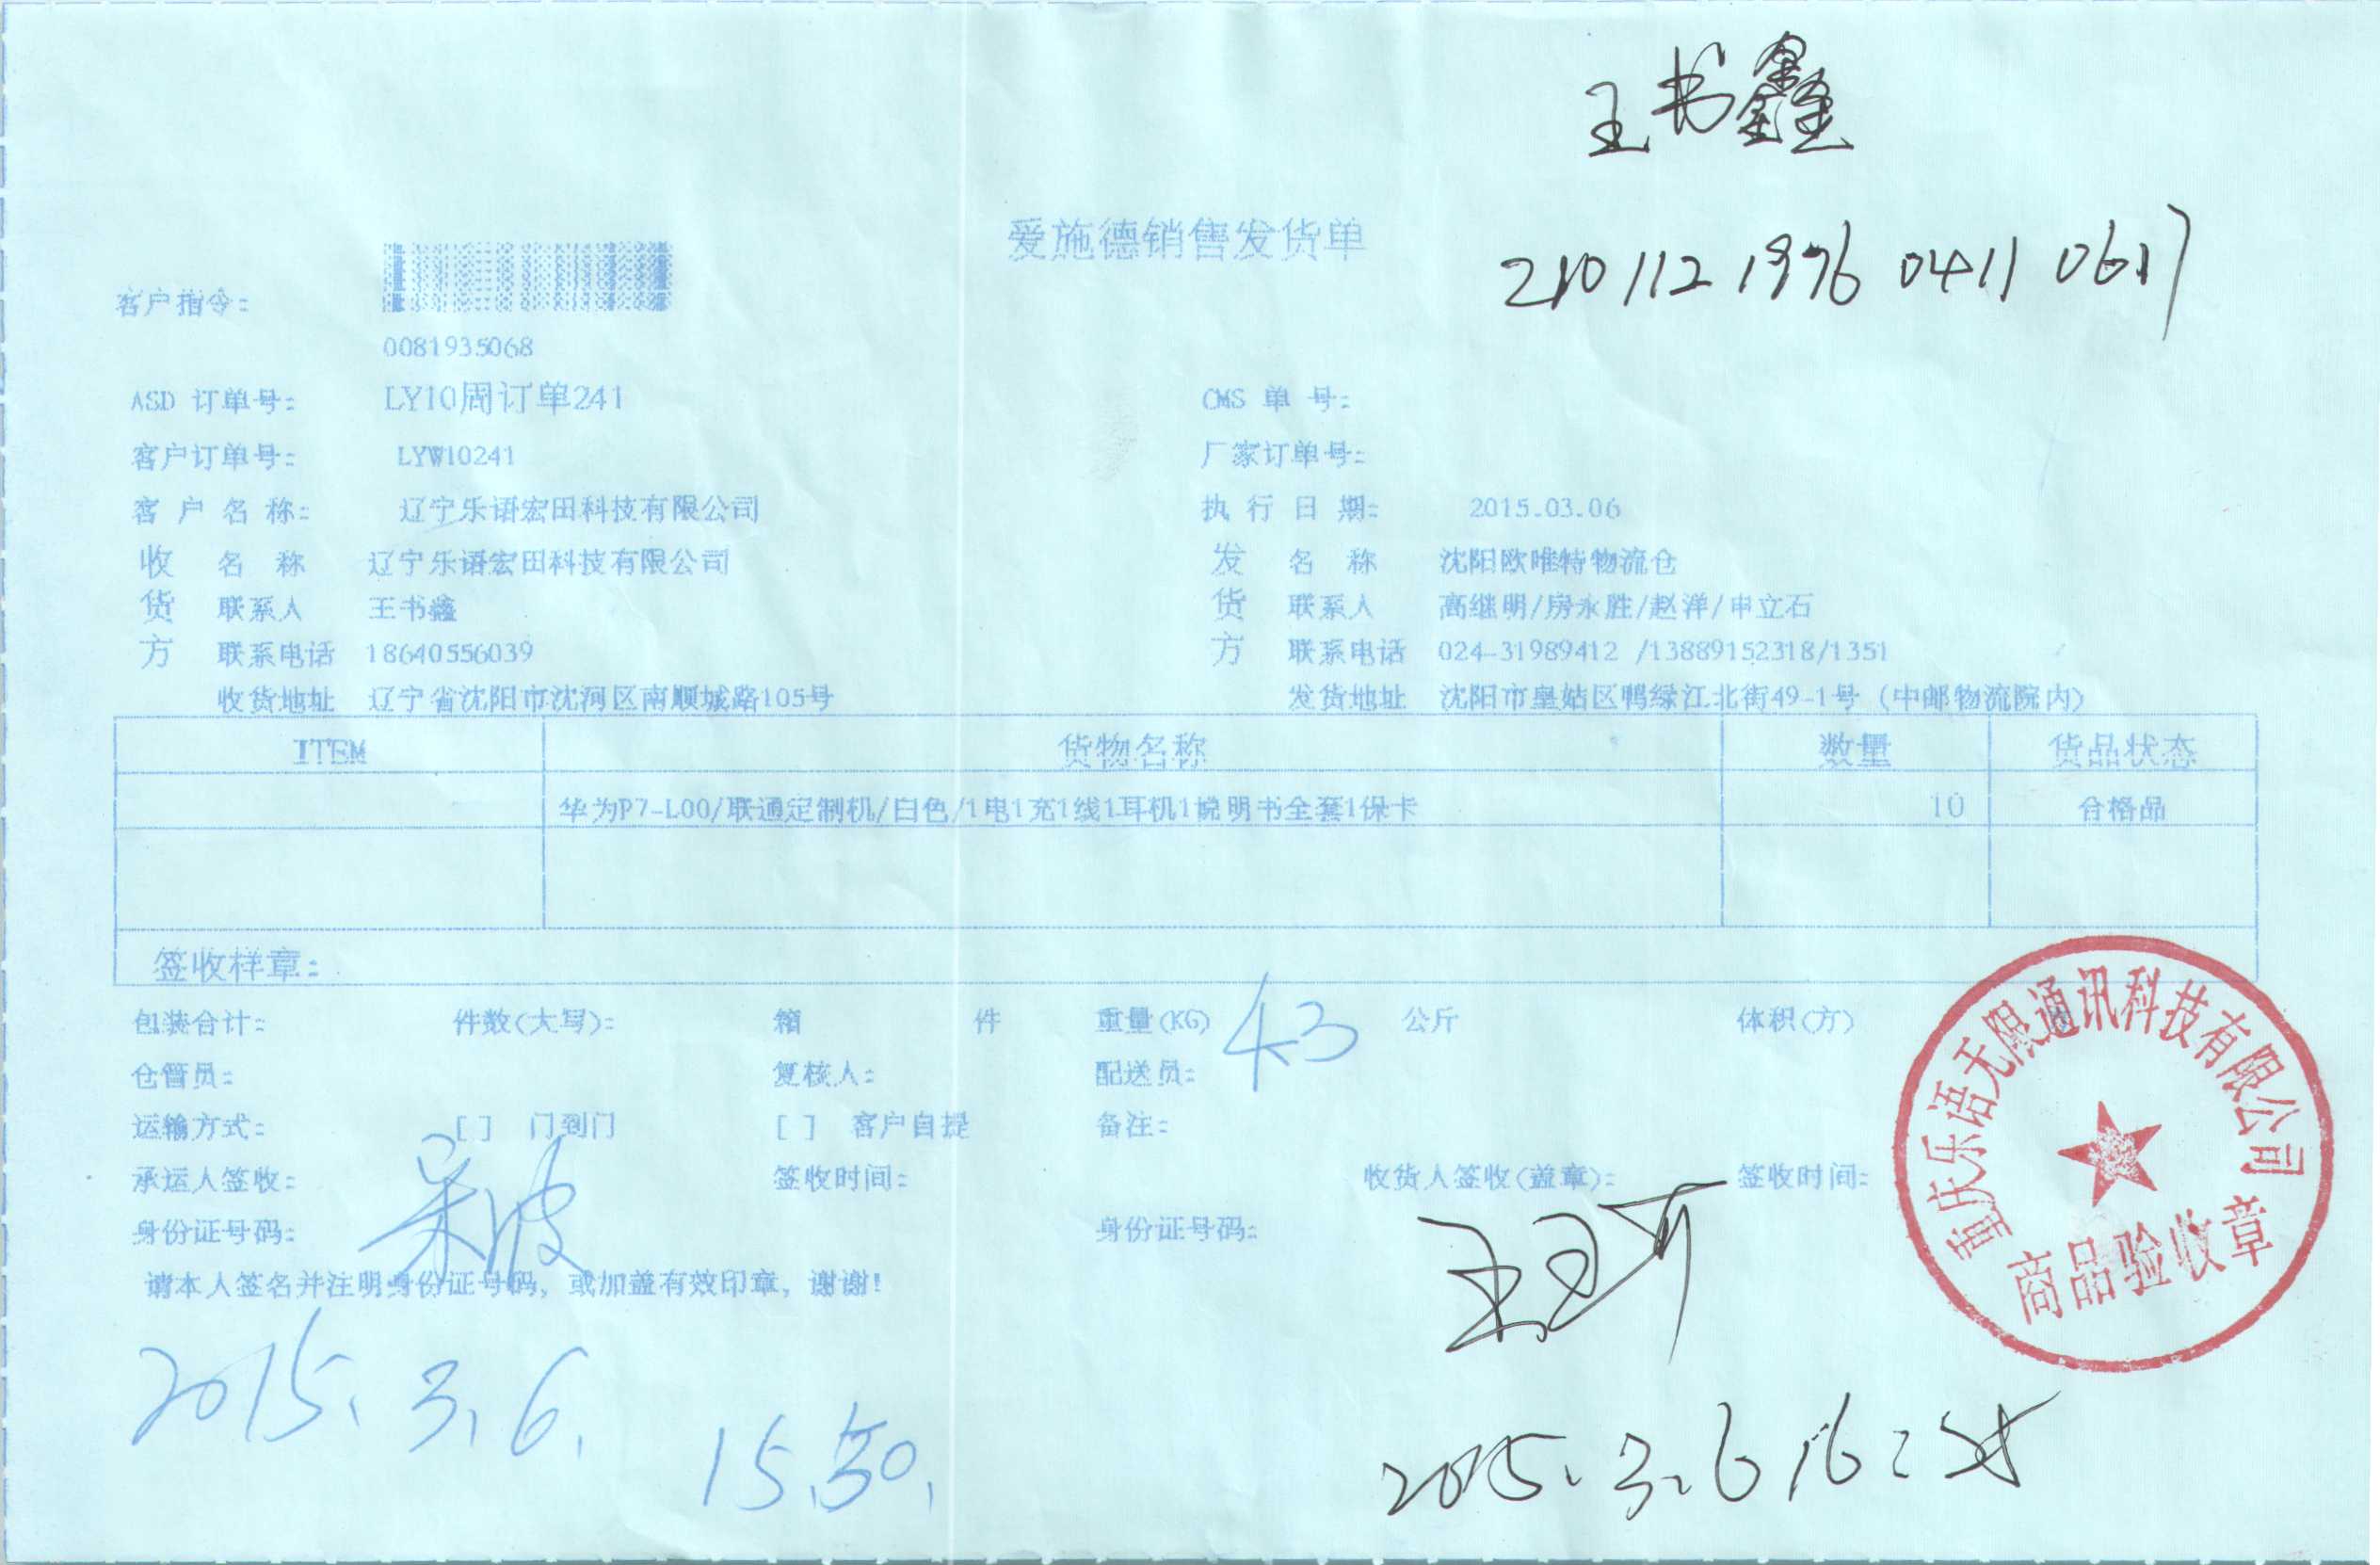 王书鑫
爱施德销售发货单
210112 1976 0411 0617
客户指令:
0081935068
ASD 订单号: LY10周订单241 CMS 单 号:
客户订单号: LYW10241 厂家订单号:
客 户 名 称: 辽宁乐语宏田科技有限公司 执 行 日 期: 2015.03.06
收 名 称 辽宁乐语宏田科技有限公司 发 名 称 沈阳欧唯特物流仓
货 联系人 王书鑫 货 联系人 高继明/房永胜/赵洋/申立石
方 联系电话 18640556039 方 联系电话 024-31989412 /13889152318/1351
收货地址 辽宁省沈阳市沈河区南顺城路105号 发货地址 沈阳市皇姑区鸭绿江北街49-1号 (中邮物流院内)
ITEM 货物名称 数量 货品状态
华为P7-L00/联通定制机/白色/1电1充1线1耳机1说明书全套1保卡 10 合格品
签收样章:
包装合计: 件数(大写): 箱 件 重量(KG) 43 公斤 体积(方)
仓管员: 复核人: 配送员:
运输方式: [ ] 门到门 [ ] 客户自提 备注:
承运人签收: 签收时间: 收货人签收(盖章): 签收时间:
身份证号码: 身份证号码:
请本人签名并注明身份证号码, 或加盖有效印章, 谢谢!
重庆乐语无限通讯科技有限公司
商品验收章
2015. 3. 6.
15.50.
2015. 3. 6 16: